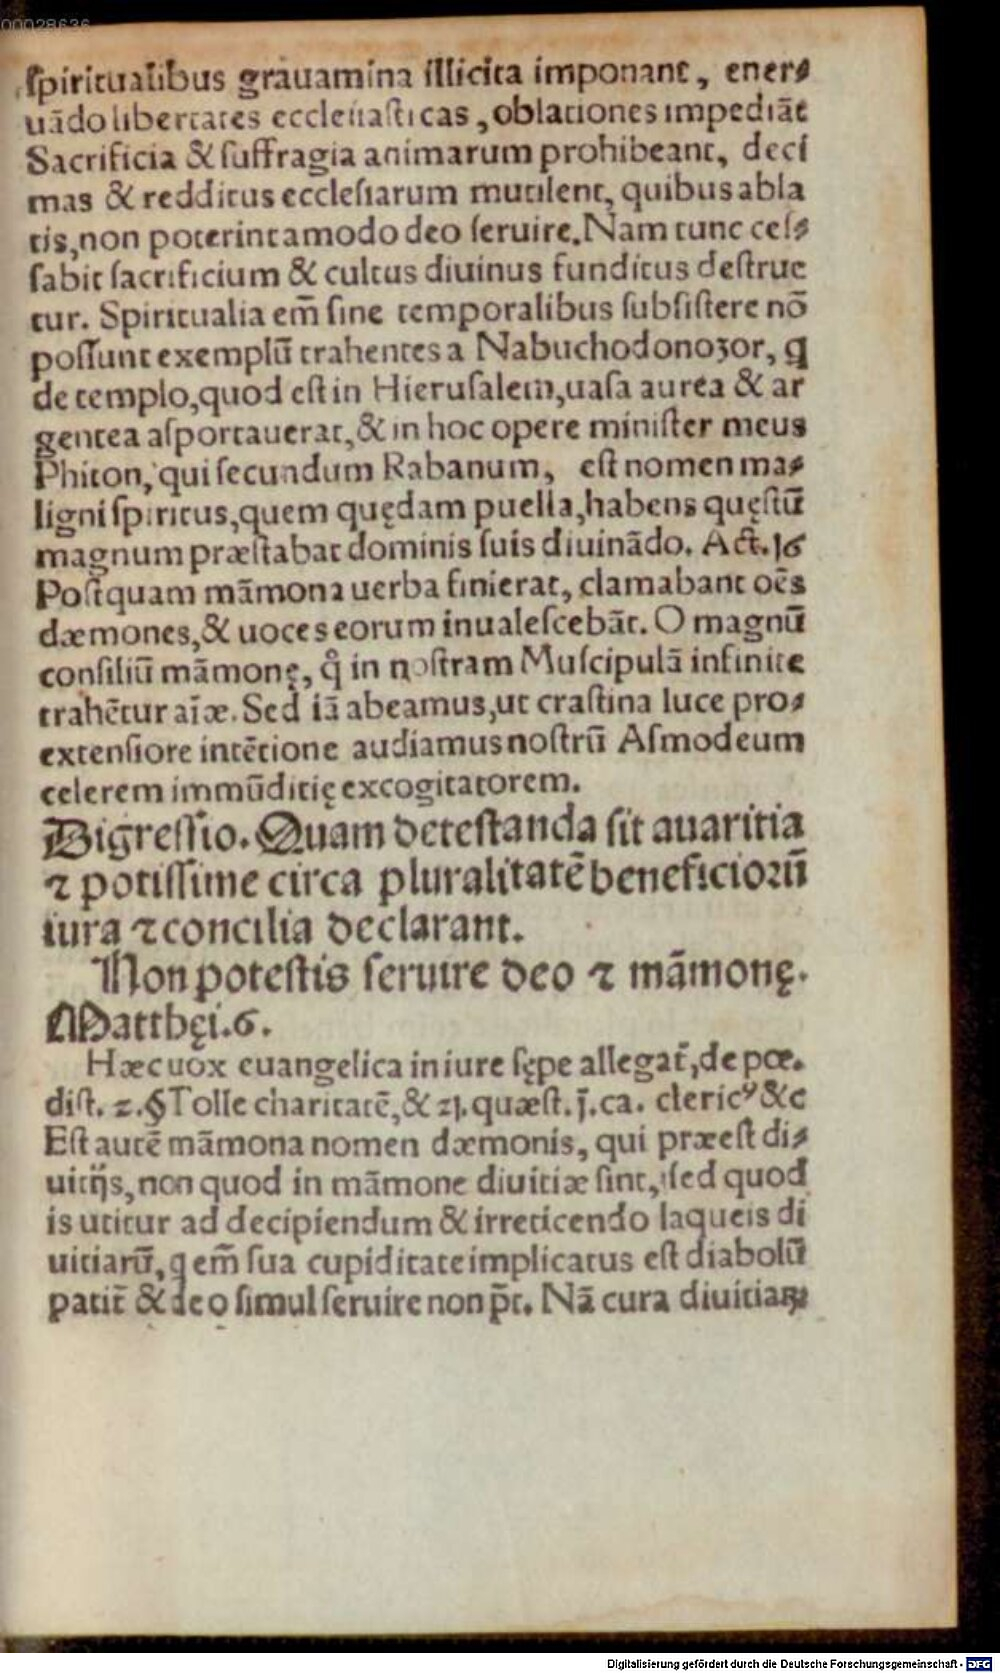 00028636
ſpiritualibus grauamina illicita imponant, ener⸗
uādo libertates eccleſiaſticas, oblationes impediāt
Sacrificia & ſuffragia animarum prohibeant, deci
mas & redditus eccleſiarum mutilent, quibus abla
tis, non poterint amodo deo ſeruire. Nam tunc ceſ⸗
ſabit ſacrificium & cultus diuinus funditus deſtrue
tur. Spiritualia em̄ ſine temporalibus ſubſiſtere nō
poſſunt exemplū trahentes a Nabuchodonoꝛor, ꝗ
de templo, quod eſt in Hieruſalem, uaſa aurea & ar
gentea aſportauerat, & in hoc opere miniſter meus
Phiton, qui ſecundum Rabanum, eſt nomen ma⸗
ligni ſpiritus, quem quędam puella, habens quęſtū
magnum præſtabat dominis ſuis diuinādo. Act. 16
Poſtquam māmona uerba finierat, clamabant oēs
dæmones, & uoces eorum inualeſcebāt. O magnū
conſiliū māmonę, ꝙ̊ in noſtram Muſcipulā infinite
trahētur aīæ. Sed iā abeamus, ut craſtina luce pro⸗
extenſiore intētione audiamus noſtrū Aſmodeum
celerem immūditię excogitatorem.
Digreſſio. Quam deteſtanda ſit auaritia
⁊ potiſſime circa pluralitatē beneficioꝛū
iura ⁊ concilia declarant.
Non poteſtis ſeruire deo ⁊ māmonę.
Matthęi. 6.
Hæc uox euangelica in iure ſępe allegat̄, de pœ.
diſt. 2. § Tolle charitatē, & 21. quæſt. j̄. ca. clericꝰ &c
Eſt autē māmona nomen dæmonis, qui præeſt di⸗
uitijs, non quod in māmone diuitiæ ſint, ſed quod
is utitur ad decipiendum & irreticendo laqueis di
uitiarū, q em̄ ſua cupiditate implicatus eſt diabolū
patit̄ & deo ſimul ſeruire non p̄t. Nā cura diuitiaꝝ
Digitalisierung gefördert durch die Deutsche Forschungsgemeinschaft - DFG